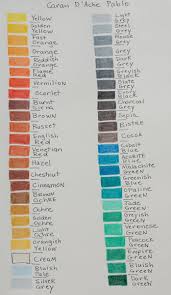 Caran D'Ache Pablo
Yellow
Golden
Yellow
Fast
Orange
Orange
Reddish
Orange
Flame
Red
Vermilion
Scarlet
Burnt
Sienna
Brown
Russet
English
Red
Venetian
Red
Hazel
Chestnut
Cinnamon
Brown
Ochre
Ochre
Golden
Ochre
Light
Ochre
Orangish
Yellow
Cream
Bluish
Pale
Silver
Grey
Light
Grey
Steel
Grey
Grey
Grey
Slate
Grey
Black
Charcoal
Grey
Sepia
Bistre
Cocoa
Cobalt
Blue
Blue
Malachite
Green
Greenish
Blue
Opaline
Green
Jade
Green
Greyish
Green
Veronese
Green
Peacock
Green
Empire
Green
Bluish
Green
Dark
Green